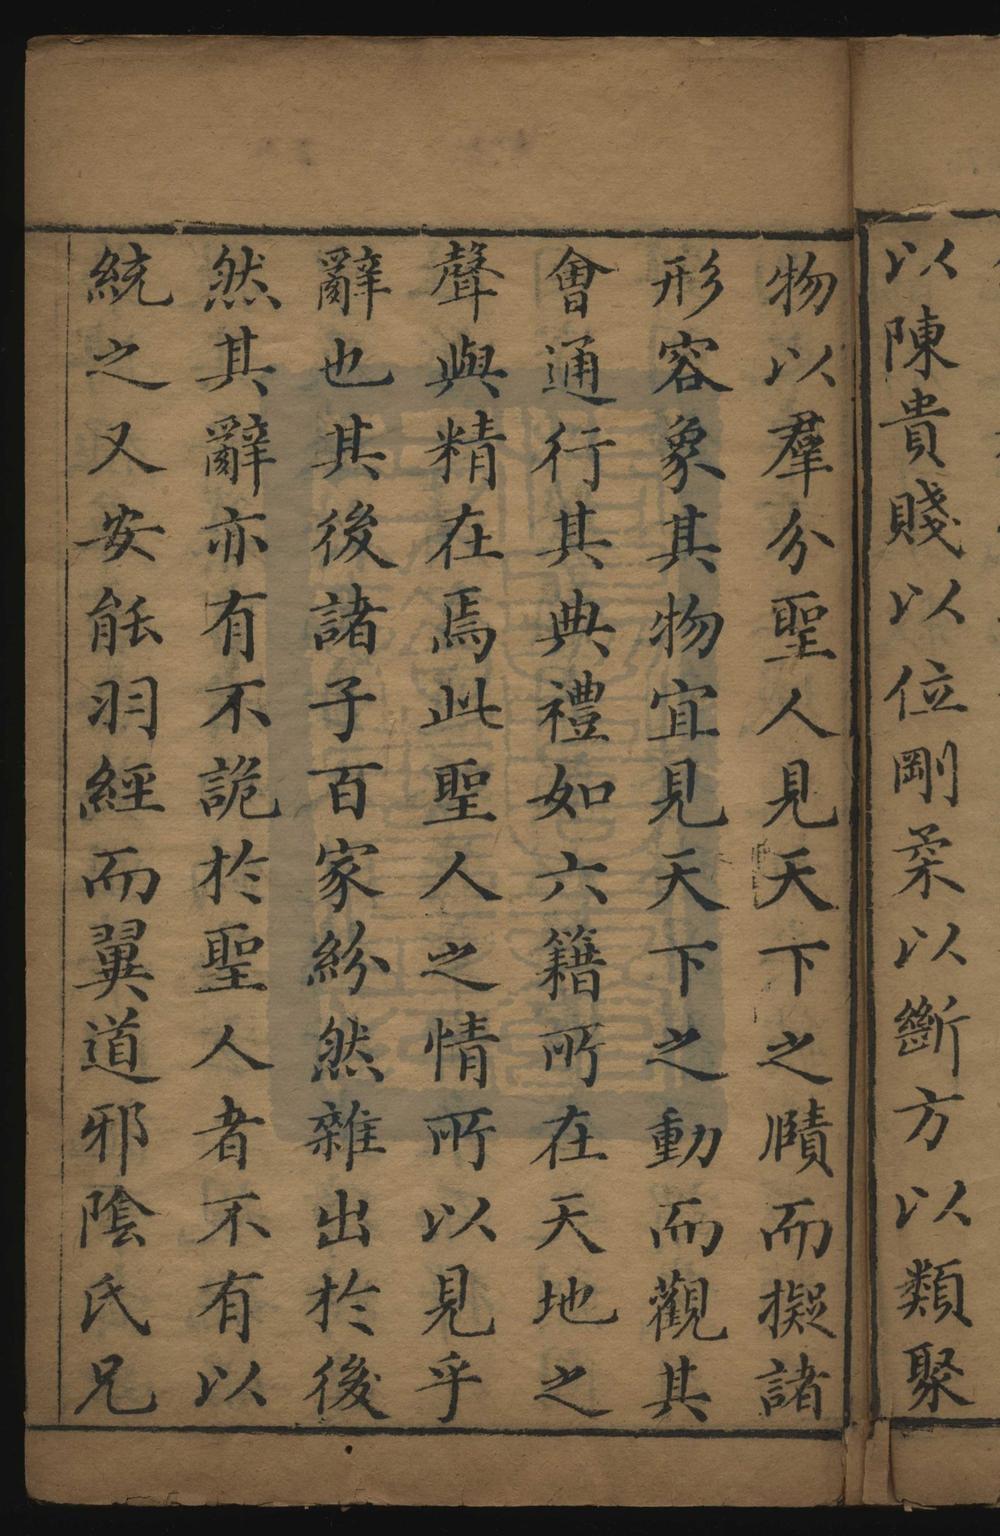 以陳貴賤以位剛柔以斷方以類聚
物以羣分聖人見天下之賾而擬諸
形容象其物宜見天下之動而觀其
會通行其典禮如六籍所在天地之
聲與精在焉此聖人之情所以見乎
辭也其後諸子百家紛然雜出於後
然其辭亦有不詭於聖人者不有以
統之又安能羽經而翼道邪陰氏兄